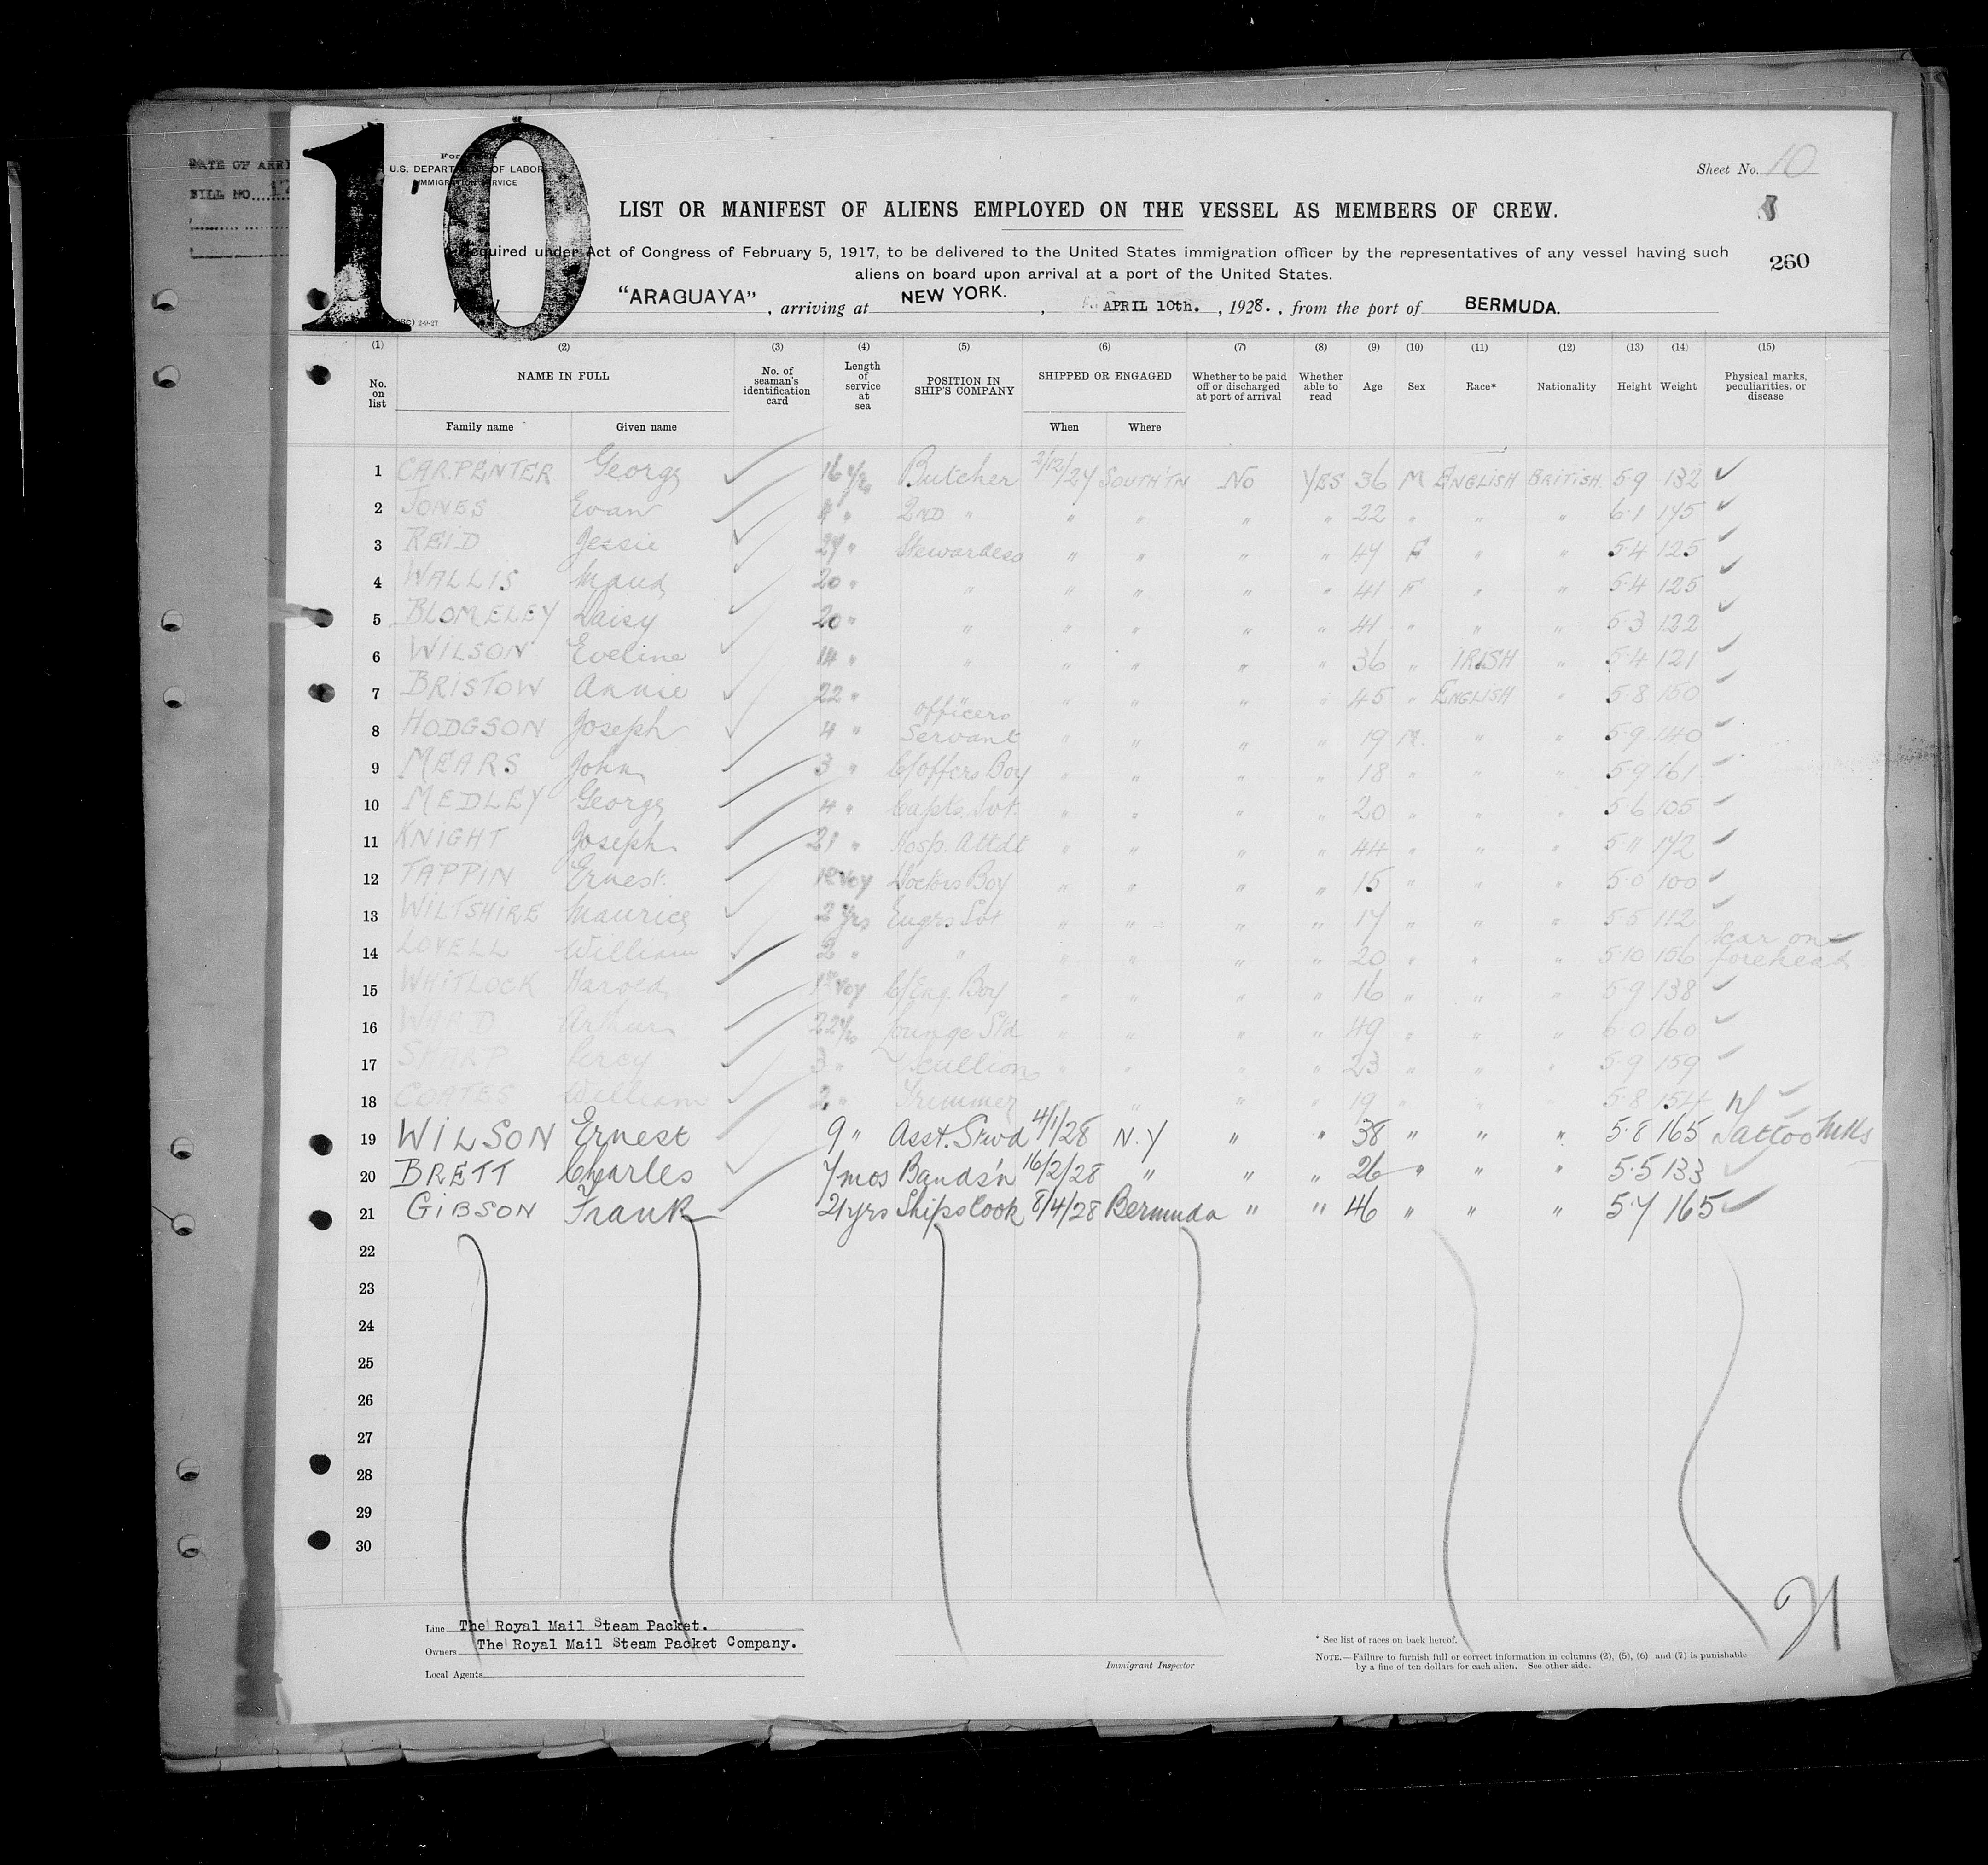 DATE OF ARRI
BILL NO.
10
U.S. DEPARTMENT OF LABOR
IMMIGRATION SERVICE
Sheet No. 10
LIST OR MANIFEST OF ALIENS EMPLOYED ON THE VESSEL AS MEMBERS OF CREW.
Required under Act of Congress of February 5, 1917, to be delivered to the United States immigration officer by the representatives of any vessel having such
260
aliens on board upon arrival at a port of the United States.
"ARAGUAYA", arriving at NEW YORK., APRIL 10th., 1928., from the port of BERMUDA.
2-9-27
(1) (2) (3) (4) (5) (6) (7) (8) (9) (10) (11) (12) (13) (14) (15)
No. on list NAME IN FULL No. of seaman's identification card Length of service at sea POSITION IN SHIP'S COMPANY SHIPPED OR ENGAGED Whether to be paid off or discharged at port of arrival Whether able to read Age Sex Race* Nationality Height Weight Physical marks, peculiarities, or disease
Family name Given name When Where
1 CARPENTER George 16 yrs Butcher 2/12/27 SOUTH'TN No YES 36 M ENGLISH BRITISH 5.9 132 ✓
2 JONES Evan " 2ND " " " " " 22 " " " 6.1 175 ✓
3 REID Jessie 27 " Stewardess " " " " 47 F " " 5.4 125 ✓
4 WALLIS Maud 20 " " " " " " 41 F " " 5.4 125 ✓
5 BLOMELEY Daisy 20 " " " " " " 41 " " " 5.3 122 ✓
6 WILSON Eveline 14 " " " " " " 36 " IRISH " 5.4 121 ✓
7 BRISTOW Annie 22 " " " " " 45 " ENGLISH " 5.8 150 ✓
8 HODGSON Joseph 4 " officers Servant " " " " 19 M. " " 5.9 140 ✓
9 MEARS John 3 " C/offers Boy " " " " 18 " " " 5.9 161 ✓
10 MEDLEY George 4 " Capts. Svt. " " " " 20 " " " 5.6 105 ✓
11 KNIGHT Joseph 21 " Hosp. Attdt " " " " 44 " " " 5.11 172 ✓
12 TAPPIN Ernest. 1st Voy Doctors Boy " " " " 15 " " " 5.0 100 ✓
13 WILTSHIRE Maurice 2 yrs Engrs Svt " " " " 17 " " " 5.5 112 ✓
14 LOVELL William 2 " " " " " " 20 " " " 5.10 156 Scar on forehead ✓
15 WHITLOCK Harold 1st Voy C/Eng. Boy " " " " 16 " " " 5.9 138 ✓
16 WARD Arthur 22 yrs Lounge Std " " " " 49 " " " 6.0 160 ✓
17 SHARP Percy 3 " Scullion " " " " 23 " " " 5.9 159 ✓
18 COATES William 2 " Trimmer " " " " 19 " " " 5.8 154 ✓
19 WILSON Ernest 9 " Asst. Stwd 4/1/28 N.Y " " 38 " " " 5.8 165 Tattoo Mks
20 BRETT Charles 7 mos Bands'n 16/2/28 " " " 26 " " " 5.5 133 ✓
21 GIBSON Frank 21 yrs Ships Cook 8/4/28 Bermuda " " 46 " " " 5.7 165 ✓
22
23
24
25
26
27
28
29
30
21
Line The Royal Mail Steam Packet.
Owners The Royal Mail Steam Packet Company.
Local Agents
Immigrant Inspector
* See list of races on back hereof.
NOTE.—Failure to furnish full or correct information in columns (2), (5), (6) and (7) is punishable
by a fine of ten dollars for each alien. See other side.